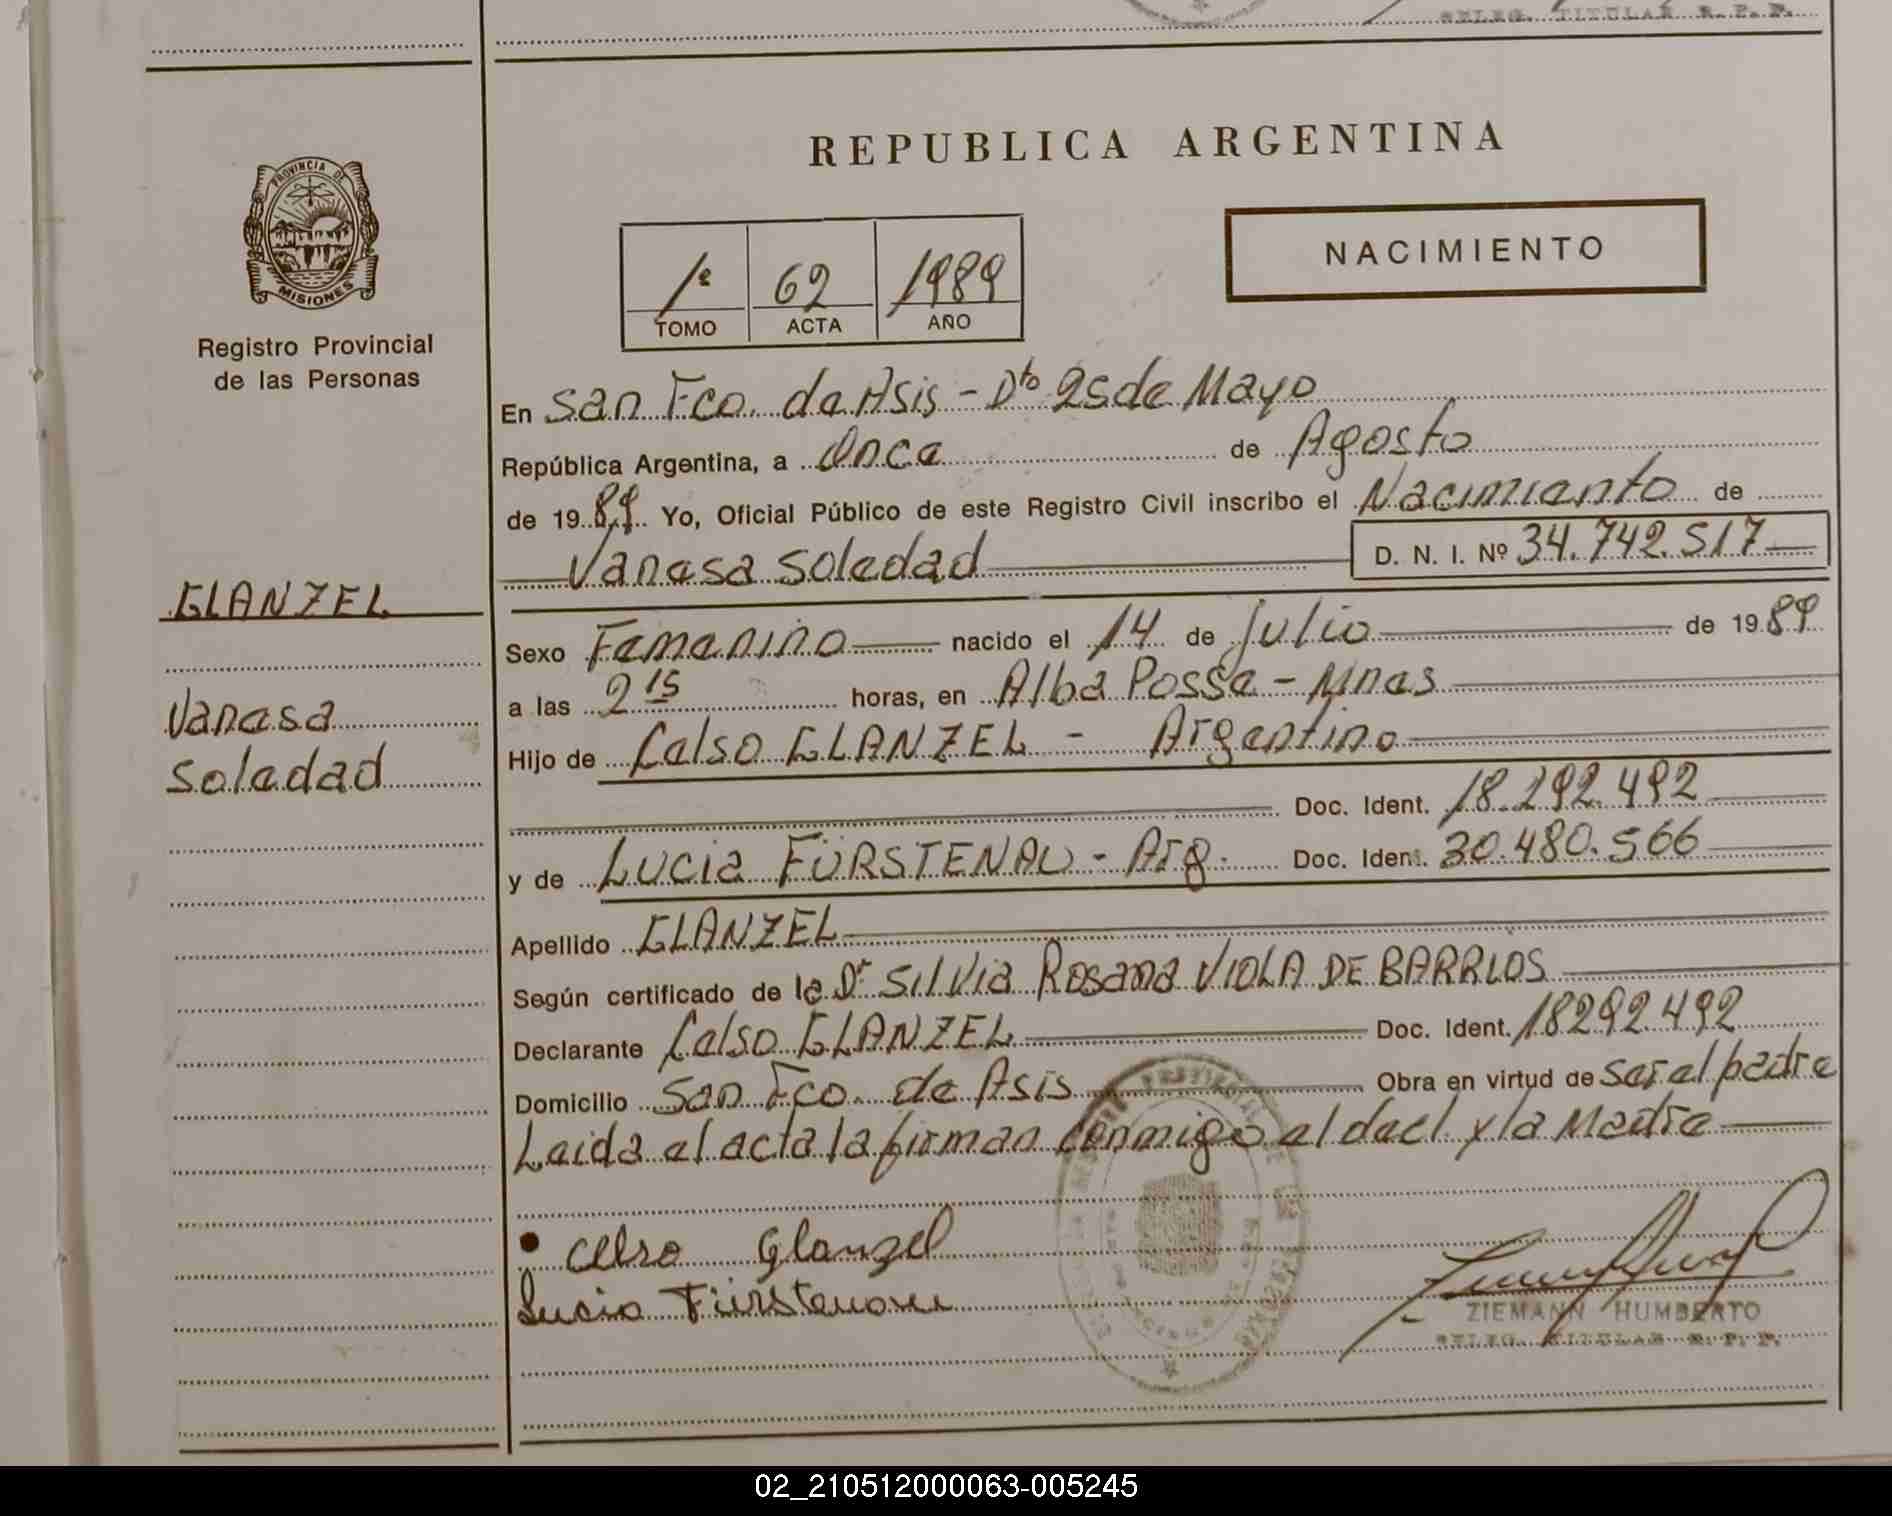 SELEG. TITULAR R.P.P.
REPUBLICA ARGENTINA
PROVINCIA DE
MISIONES
Registro Provincial
de las Personas
NACIMIENTO
1º 62 1989
TOMO ACTA AÑO
En San Fco. de Asis - Dto 25 de Mayo
República Argentina, a Once de Agosto
de 1989 Yo, Oficial Público de este Registro Civil inscribo el Nacimiento de
Vanesa Soledad D. N. I. Nº 34.742.517
GLANZEL
Vanesa
Soledad
Sexo Femenino nacido el 14 de Julio de 1989
a las 2 15 horas, en Alba Posse - Mnes
Hijo de Celso GLANZEL - Argentino
Doc. Ident. 18.292.492
y de Lucia FÜRSTENAU - Arg. Doc. Ident. 30.480.566
Apellido GLANZEL
Según certificado de la Dr Silvia Rosana VIOLA DE BARRIOS
Declarante Celso GLANZEL Doc. Ident. 18292.492
Domicilio San Fco. de Asis Obra en virtud de ser el padre
Leida el acta la firman conmigo el decl. y la Madre
Celso Glanzel
Lucia Fürstenau
ZIEMANN HUMBERTO
SELEG. TITULAR R.P.P.
02_210512000063-005245